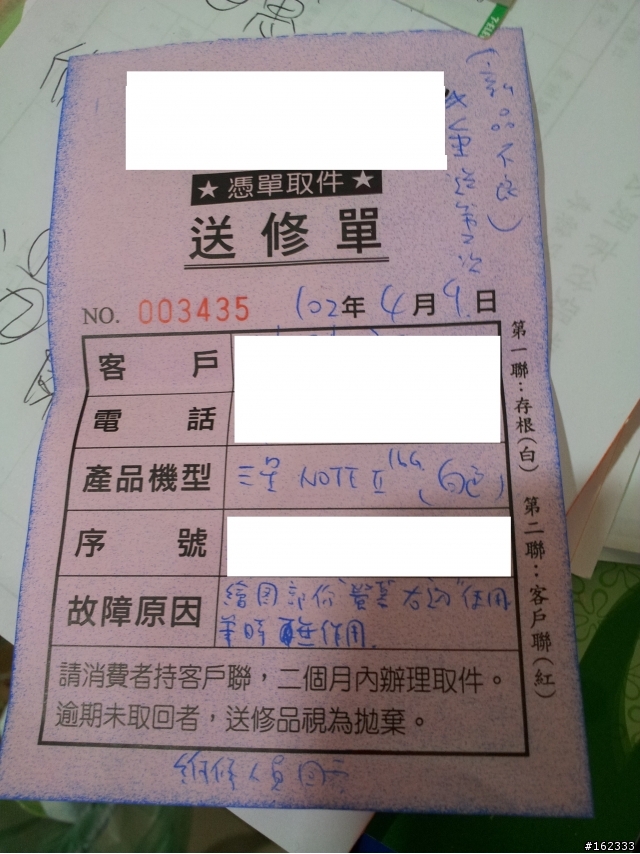 (新品不良)
★憑單取件★
送修單
NO. 003435 102年4月9日
客戶
電話
產品機型 三星 NOTE II 16G (白色)
序號
故障原因 繪圖 使用
筆時 無作用
請消費者持客戶聯，二個月內辦理取件。
逾期未取回者，送修品視為拋棄。
第一聯：存根(白) 第二聯：客戶聯(紅)
維修人員
#162333